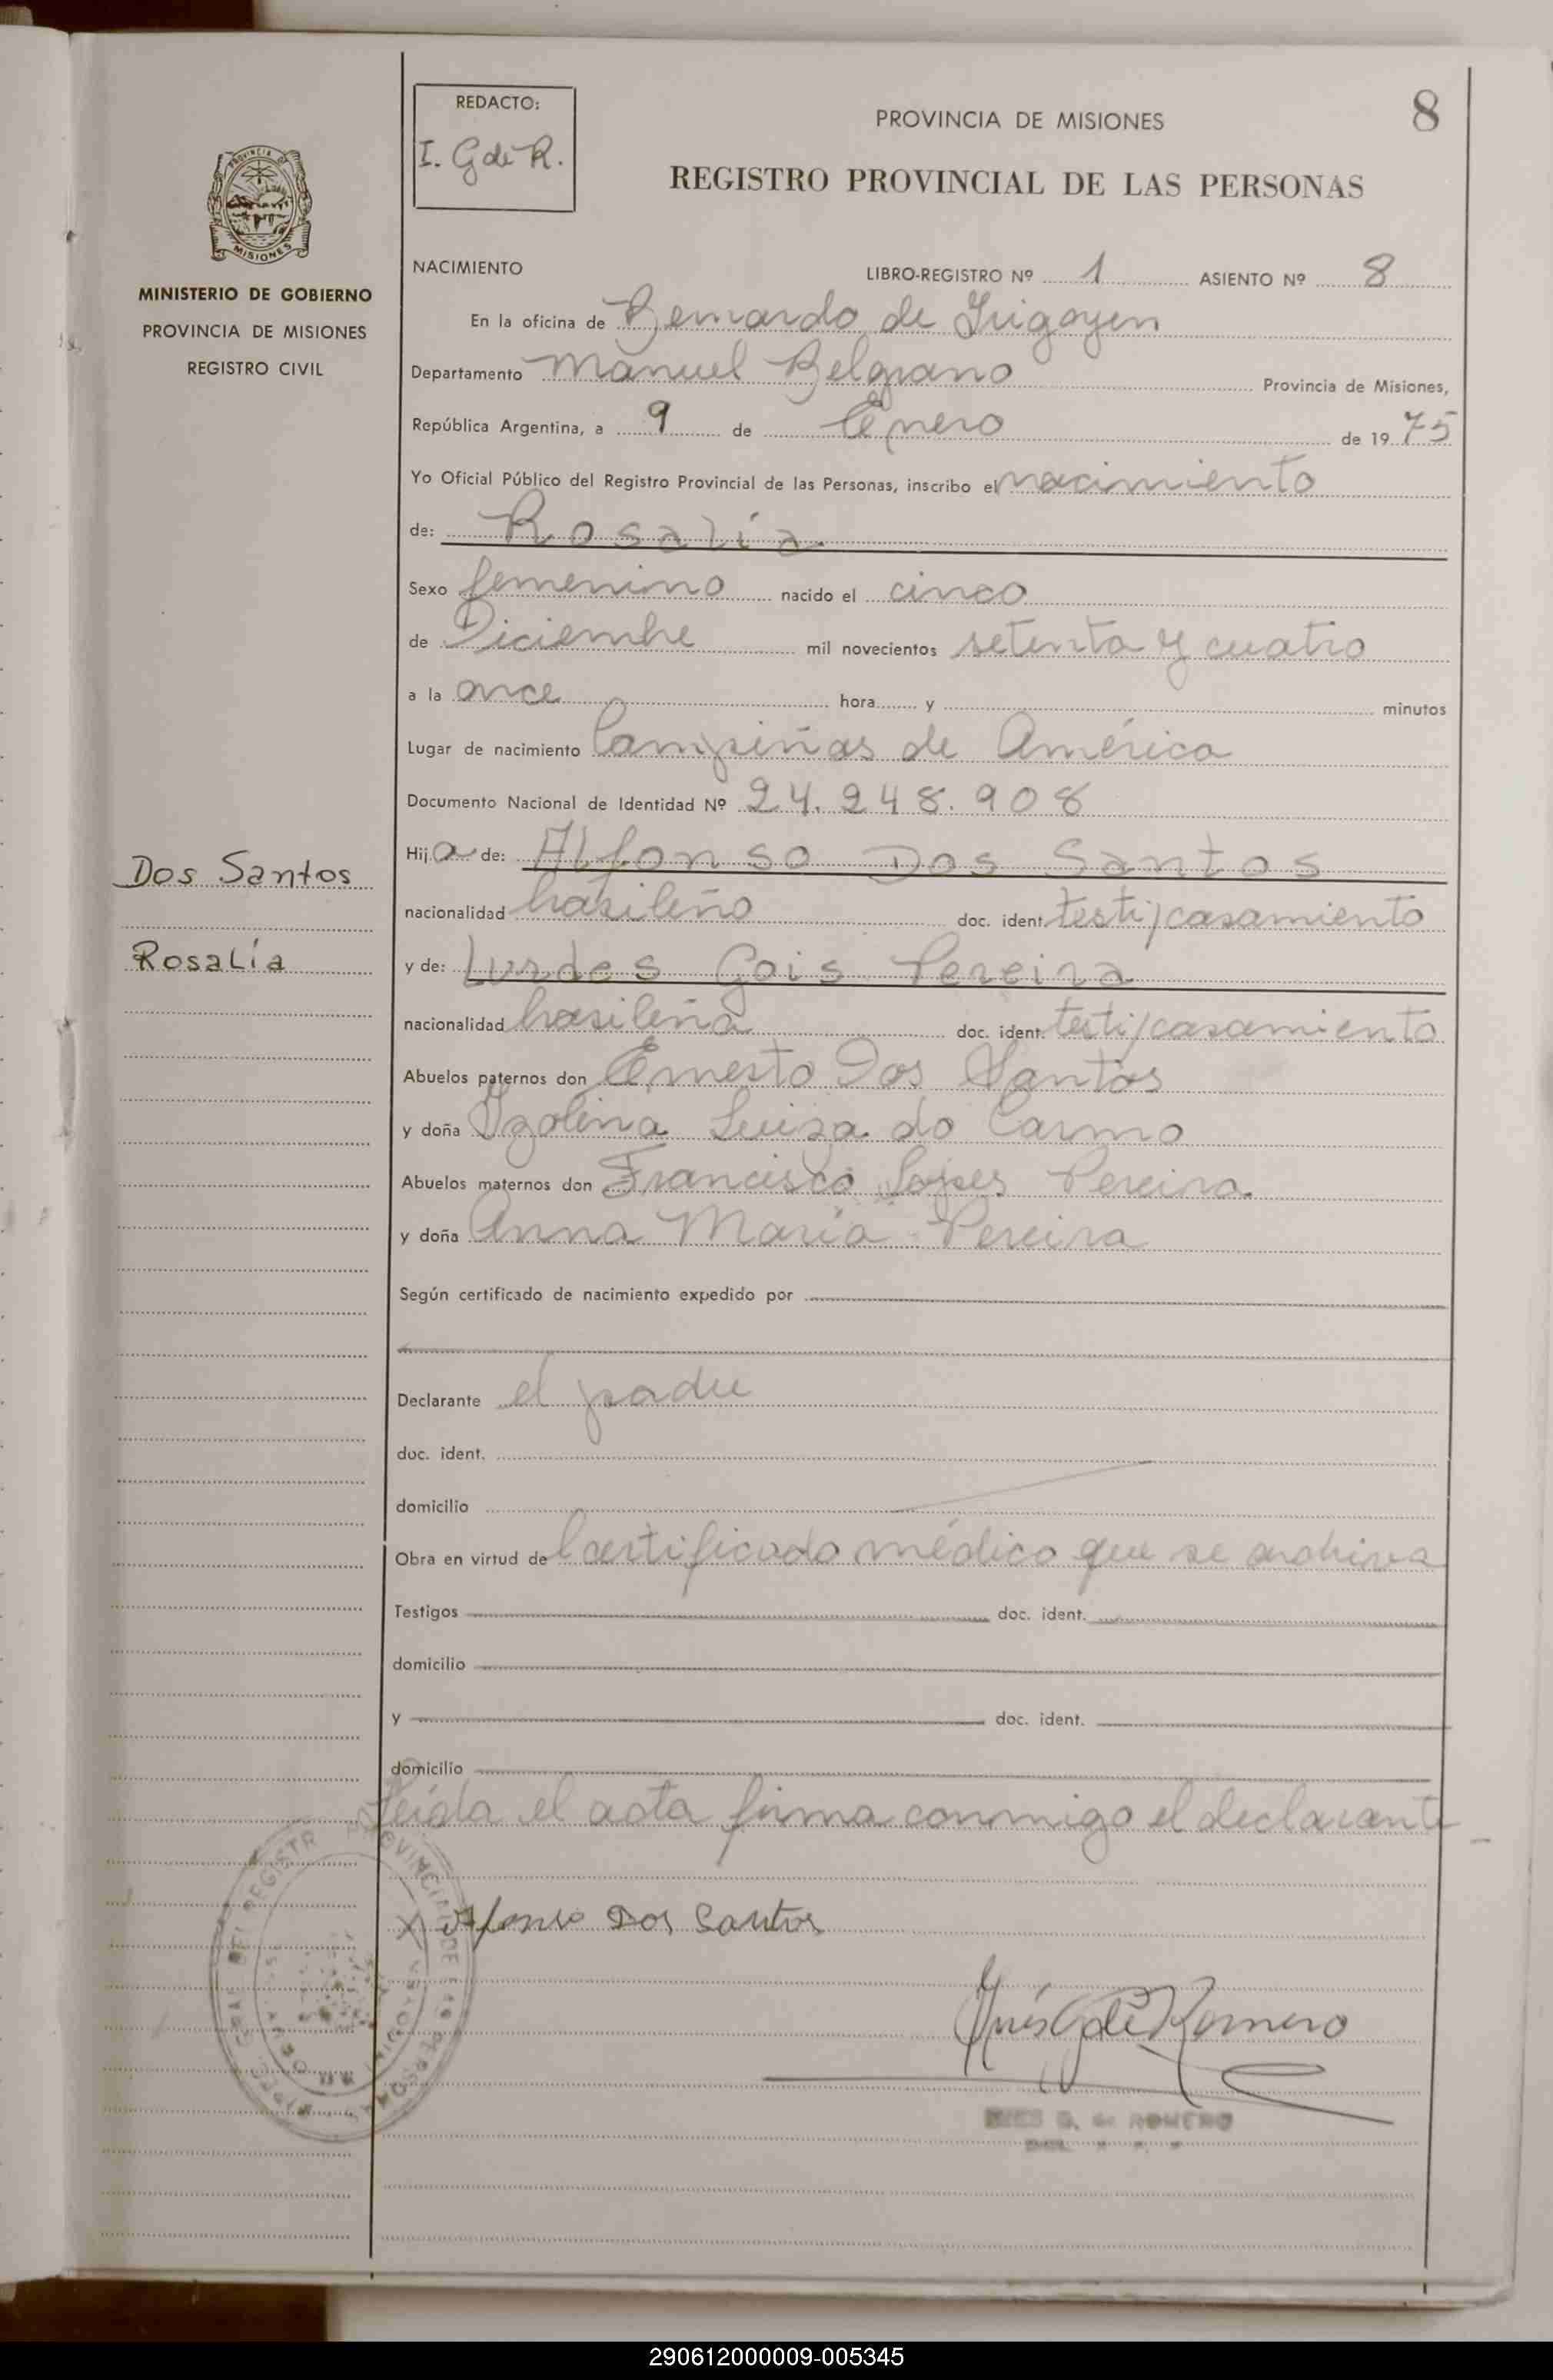 REDACTO:
I. G de R.
PROVINCIA DE MISIONES
8
REGISTRO PROVINCIAL DE LAS PERSONAS
PROVINCIA DE
MISIONES
MINISTERIO DE GOBIERNO
PROVINCIA DE MISIONES
REGISTRO CIVIL
NACIMIENTO
LIBRO-REGISTRO Nº 1 ASIENTO Nº 8
En la oficina de Bernardo de Irigoyen
Departamento Manuel Belgrano Provincia de Misiones,
República Argentina, a 9 de Enero de 1975
Yo Oficial Público del Registro Provincial de las Personas, inscribo el nacimiento
de: Rosalía
Sexo femenino nacido el cinco
de Diciembre mil novecientos setenta y cuatro
a la once hora y minutos
Lugar de nacimiento Campiñas de América
Documento Nacional de Identidad Nº 24.248.908
Hija de: Alfonso Dos Santos
Dos Santos
nacionalidad brasileño doc. ident. testi/casamiento
Rosalía
y de: Lurdes Gois Pereira
nacionalidad brasileña doc. ident. testi/casamiento
Abuelos paternos don Ernesto Dos Santos
y doña Izolina Luiza do Carmo
Abuelos maternos don Francisco Lopes Pereira
y doña Anna María Pereira
Según certificado de nacimiento expedido por
Declarante el padre
doc. ident.
domicilio
Obra en virtud de Certificado médico que se archiva
Testigos doc. ident.
domicilio
y doc. ident.
domicilio
Leída el acta firma conmigo el declarante
X Alfonso Dos Santos
Inés G de Romero
INES G. de ROMERO
290612000009-005345